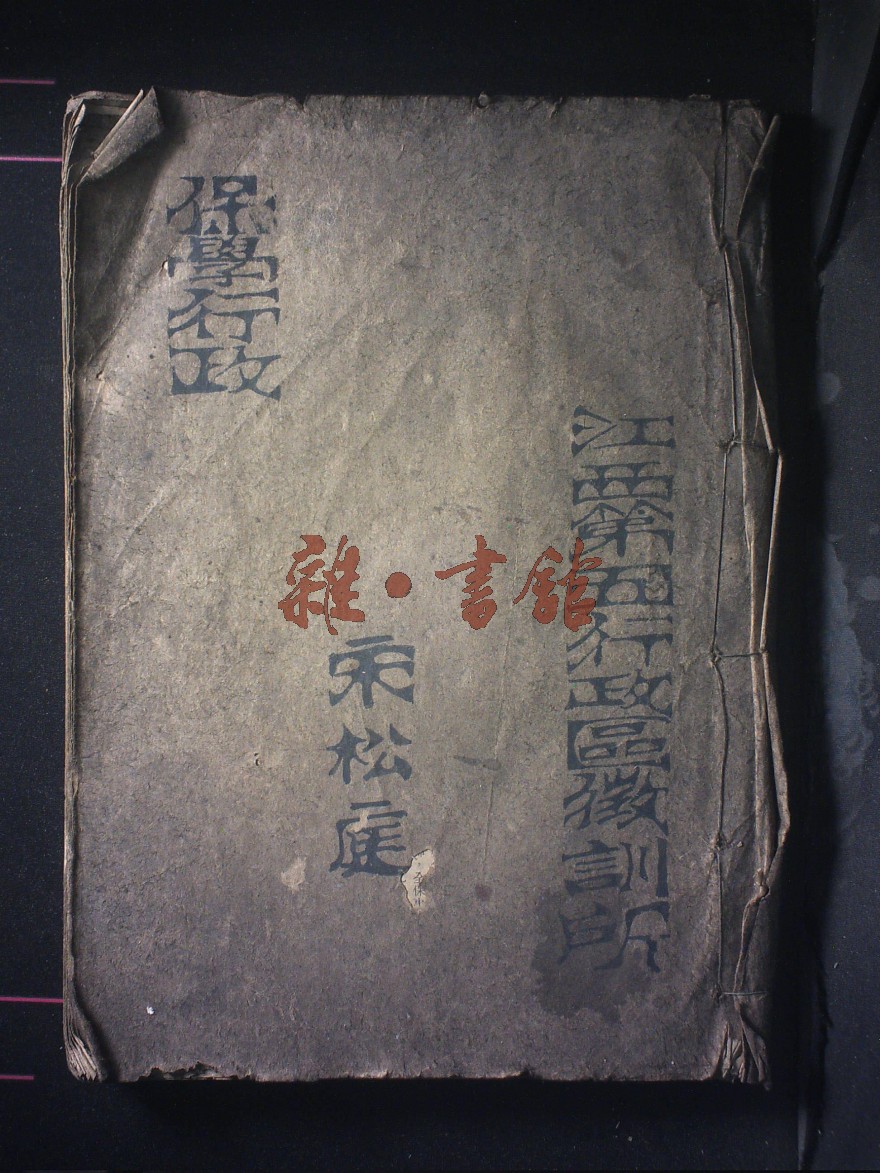 江西第五行政區徵訓所
宋松庭
保學行政
雜·書館